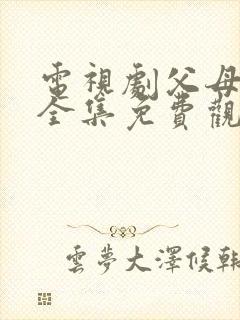 電視劇父母
全集免費觀
雲夢大澤候韓